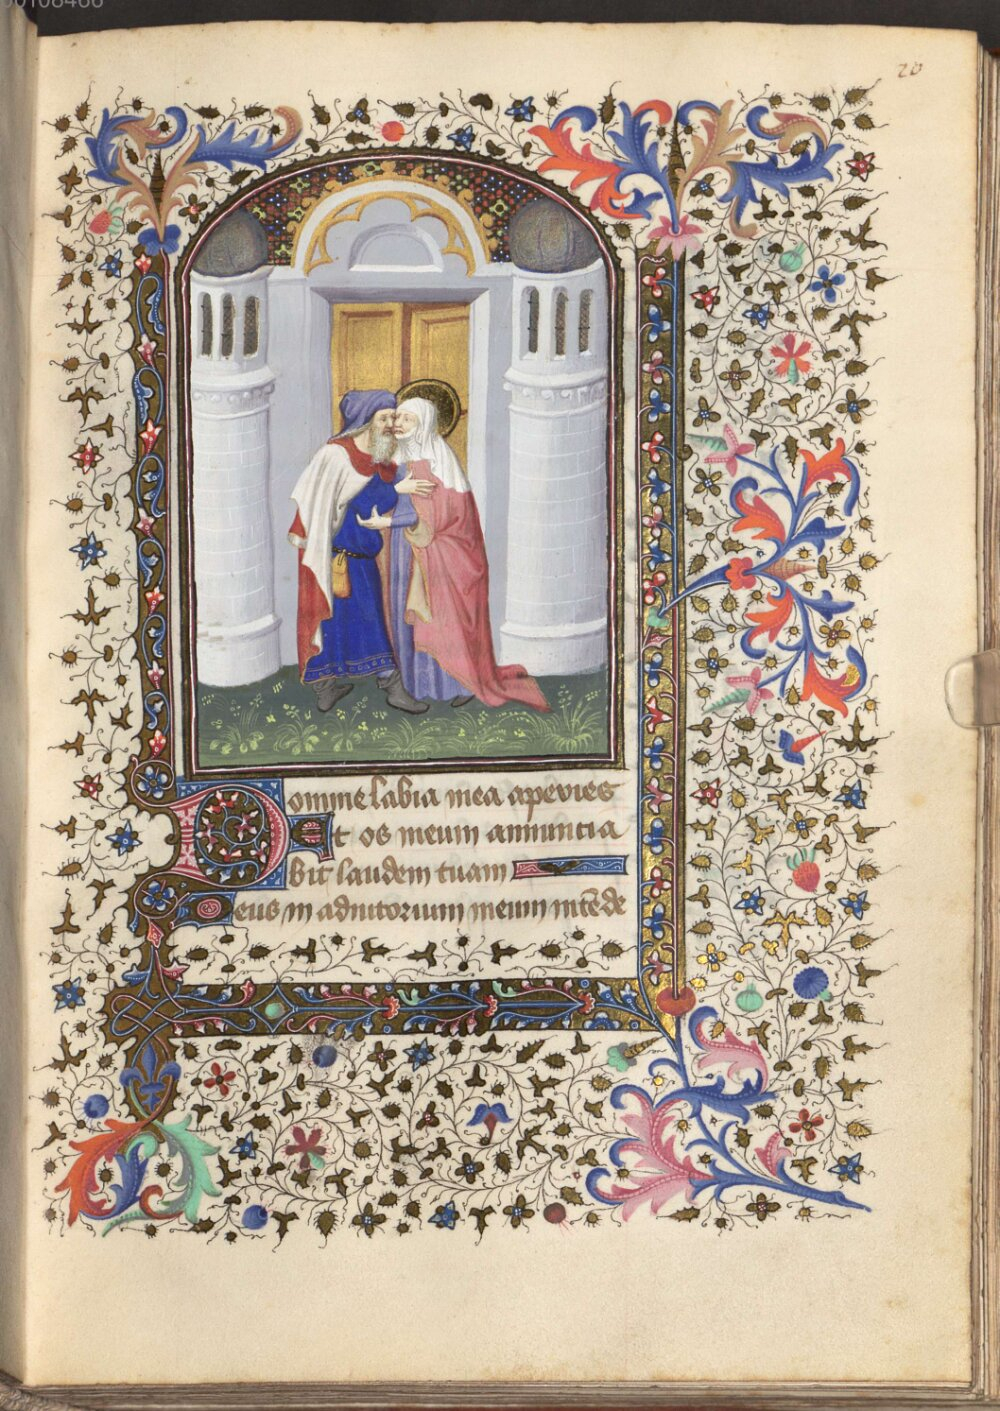 00108466
20
Domine labia mea aperies
Et os meum annuncia
Bit laudem tuam
Deus in adiutorium meum intēde